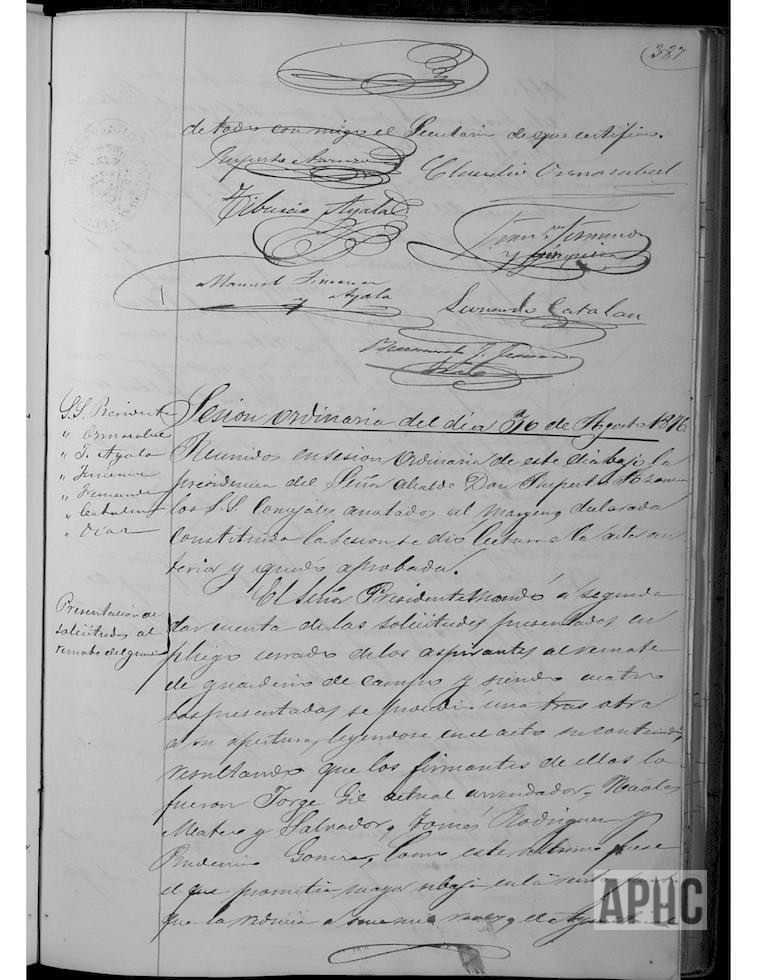 387
de todo con migo el Secretario de que certifico.
Ruperto
Claudio Ormazabal
Tiburcio Ayala
Manuel Jimenez
y Ayala
Fernando Catalan
S.S. Presidente
" Ormazabal
" T. Ayala
" Jimenez
" Fernandez
" Catalan
" Diaz
Sesion ordinaria del dia 30 de Agosto 1876
Reunidos en sesion ordinaria de este dia bajo la
presidencia del Señor Alcalde Don Ruperto
los S.S. Concejales anotados al margen, declarada
constituida la sesion se dió lectura a la acta an
terior y quedó aprobada.
Presentacion de
solicitudes al
remate del
El Señor Presidente mandó a seguida
dar cuenta de las solicitudes presentadas en
pliego cerrado de los aspirantes al remate
de de campo y siendo cuatro
las presentadas se procedió una tras otra
a su apertura, leyendose en el acto su contenido,
resultando que los firmantes de ellas lo
fueron Jorge Gil actual arrendador, Nicolas
Mateo y Salvador, Tomás Rodriguez y
Prudencio Gomez, como este ultimo fuese
el que prometia mayor rebaja en la
que la reducia a reales, el
APHC